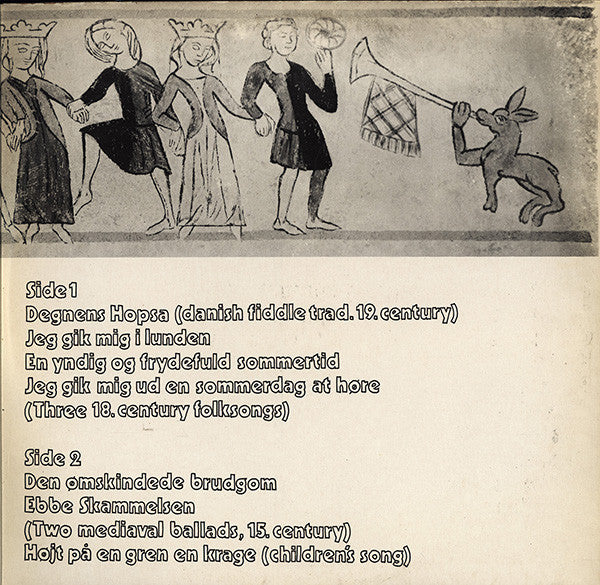 Side 1
Degnens Hopsa (danish fiddle trad. 19. century)
Jeg gik mig i lunden
En yndig og frydefuld sommertid
Jeg gik mig ud en sommerdag at høre
(Three 18. century folksongs)
Side 2
Den ømskindede brudgom
Ebbe Skammelsen
(Two mediaval ballads, 15. century)
Højt på en gren en krage (children's song)